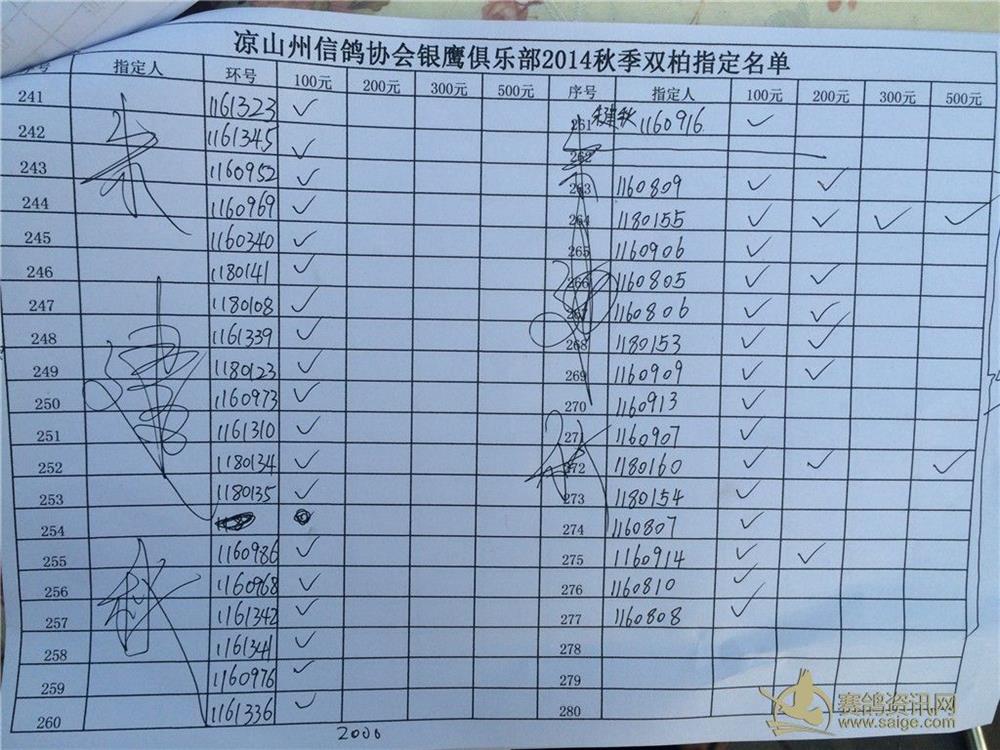 凉山州信鸽协会银鹰俱乐部2014秋季双柏指定名单
序号 指定人 环号 100元 200元 300元 500元
241 1161323 ✓
242 1161345 ✓
243 1160952 ✓
244 1160969 ✓
245 1160340 ✓
246 1180141 ✓
247 1180108 ✓
248 1161339 ✓
249 1180123 ✓
250 1160973 ✓
251 1161310 ✓
252 1180134 ✓
253 1180135 ✓
254
255 1160986 ✓
256 1160968 ✓
257 1161342 ✓
258 1161344 ✓
259 1160976 ✓
260 1161336 ✓
朱建秋
2000
序号 指定人 100元 200元 300元 500元
261 朱建秋 1160916 ✓
262
263 1160809 ✓ ✓
264 1180155 ✓ ✓ ✓ ✓
265 1160906 ✓
266 1160805 ✓ ✓
267 1160806 ✓ ✓
268 1180153 ✓ ✓
269 1160909 ✓ ✓
270 1160913 ✓
271 1160907 ✓
272 1180160 ✓ ✓ ✓
273 1180154 ✓
274 1160807 ✓
275 1160914 ✓ ✓
276 1160810 ✓
277 1160808 ✓
278
279
280
赛鸽资讯网
www.saige.com